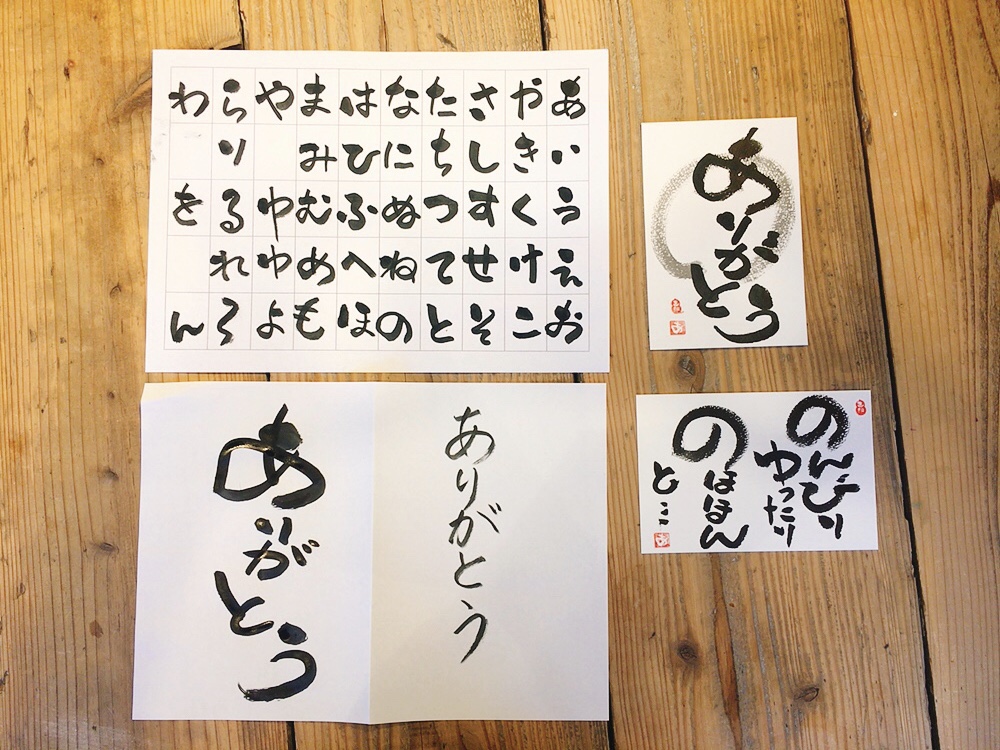 あいうえお
かきくけこ
さしすせそ
たちつてと
なにぬねの
はひふへほ
まみむめも
やゆゆよ
らりるれろ
わをん
ありがとう
のんびり
ゆったり
のほほん
と・・
ありがとう
ありがとう